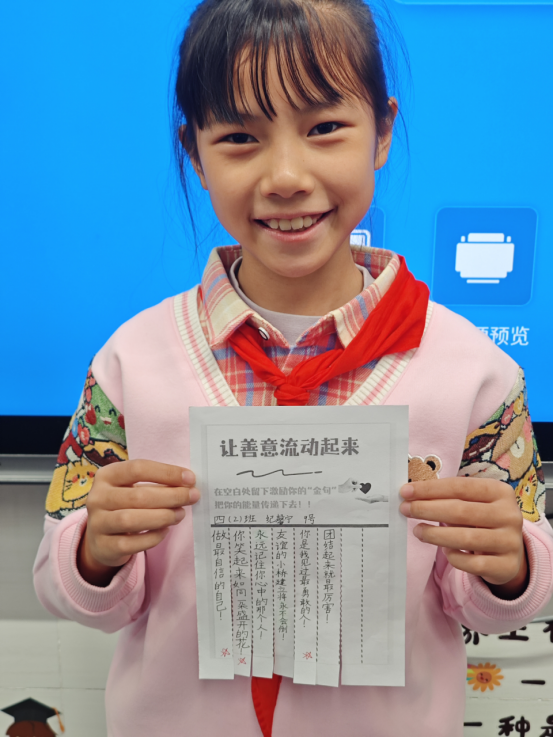 预览
让善意流动起来
在空白处留下激励你的“金句”
把你的能量传递下去！！
四(2)班 纪馨宁 9号
做最自信的自己！
你笑起来如同一朵盛开的花！
永远记住你心中的那个人！
友谊的小桥建立将永不会倒！
你是我见过最勇敢的人！
团结起来就最厉害！
一种